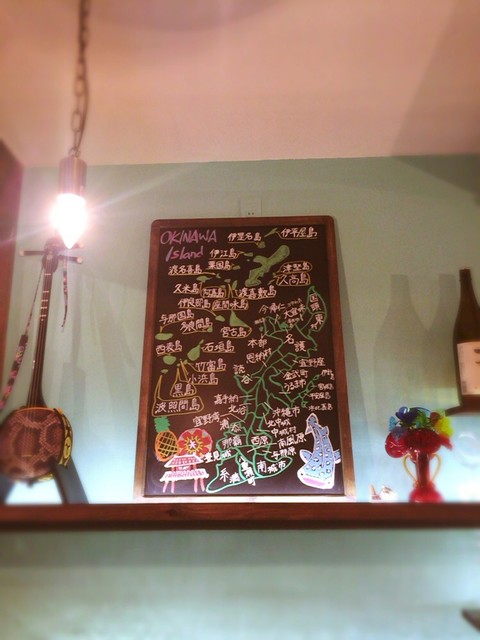 OKINAWA
Island
伊是名島
伊平屋島
伊江島
粟国島
渡名喜島
津堅島
久高島
久米島
渡嘉敷島
座間味島
与那国島
多良間島
宮古島
国頭
今帰仁
西表島
石垣島
本部
名護
竹富島
恩納村
小浜島
読谷
宜野座
金武町
うるま市
黒島
波照間島
嘉手納
北谷
沖縄市
宜野湾
北中城
中城村
西原
南風原
与那原
那覇
豊見城
糸満
南城市